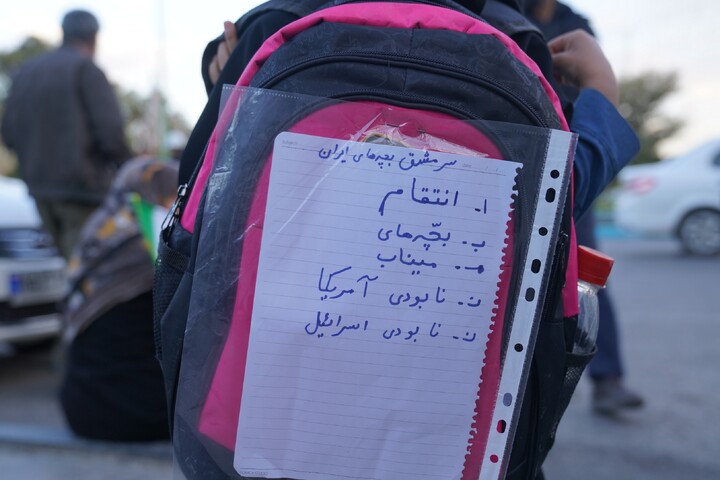 سرمشق بچه‌های ایران
ا. انتقام
ب. بچّه‌های
م. میناب
ن. نابودی آمریکا
ن. نابودی اسرائیل